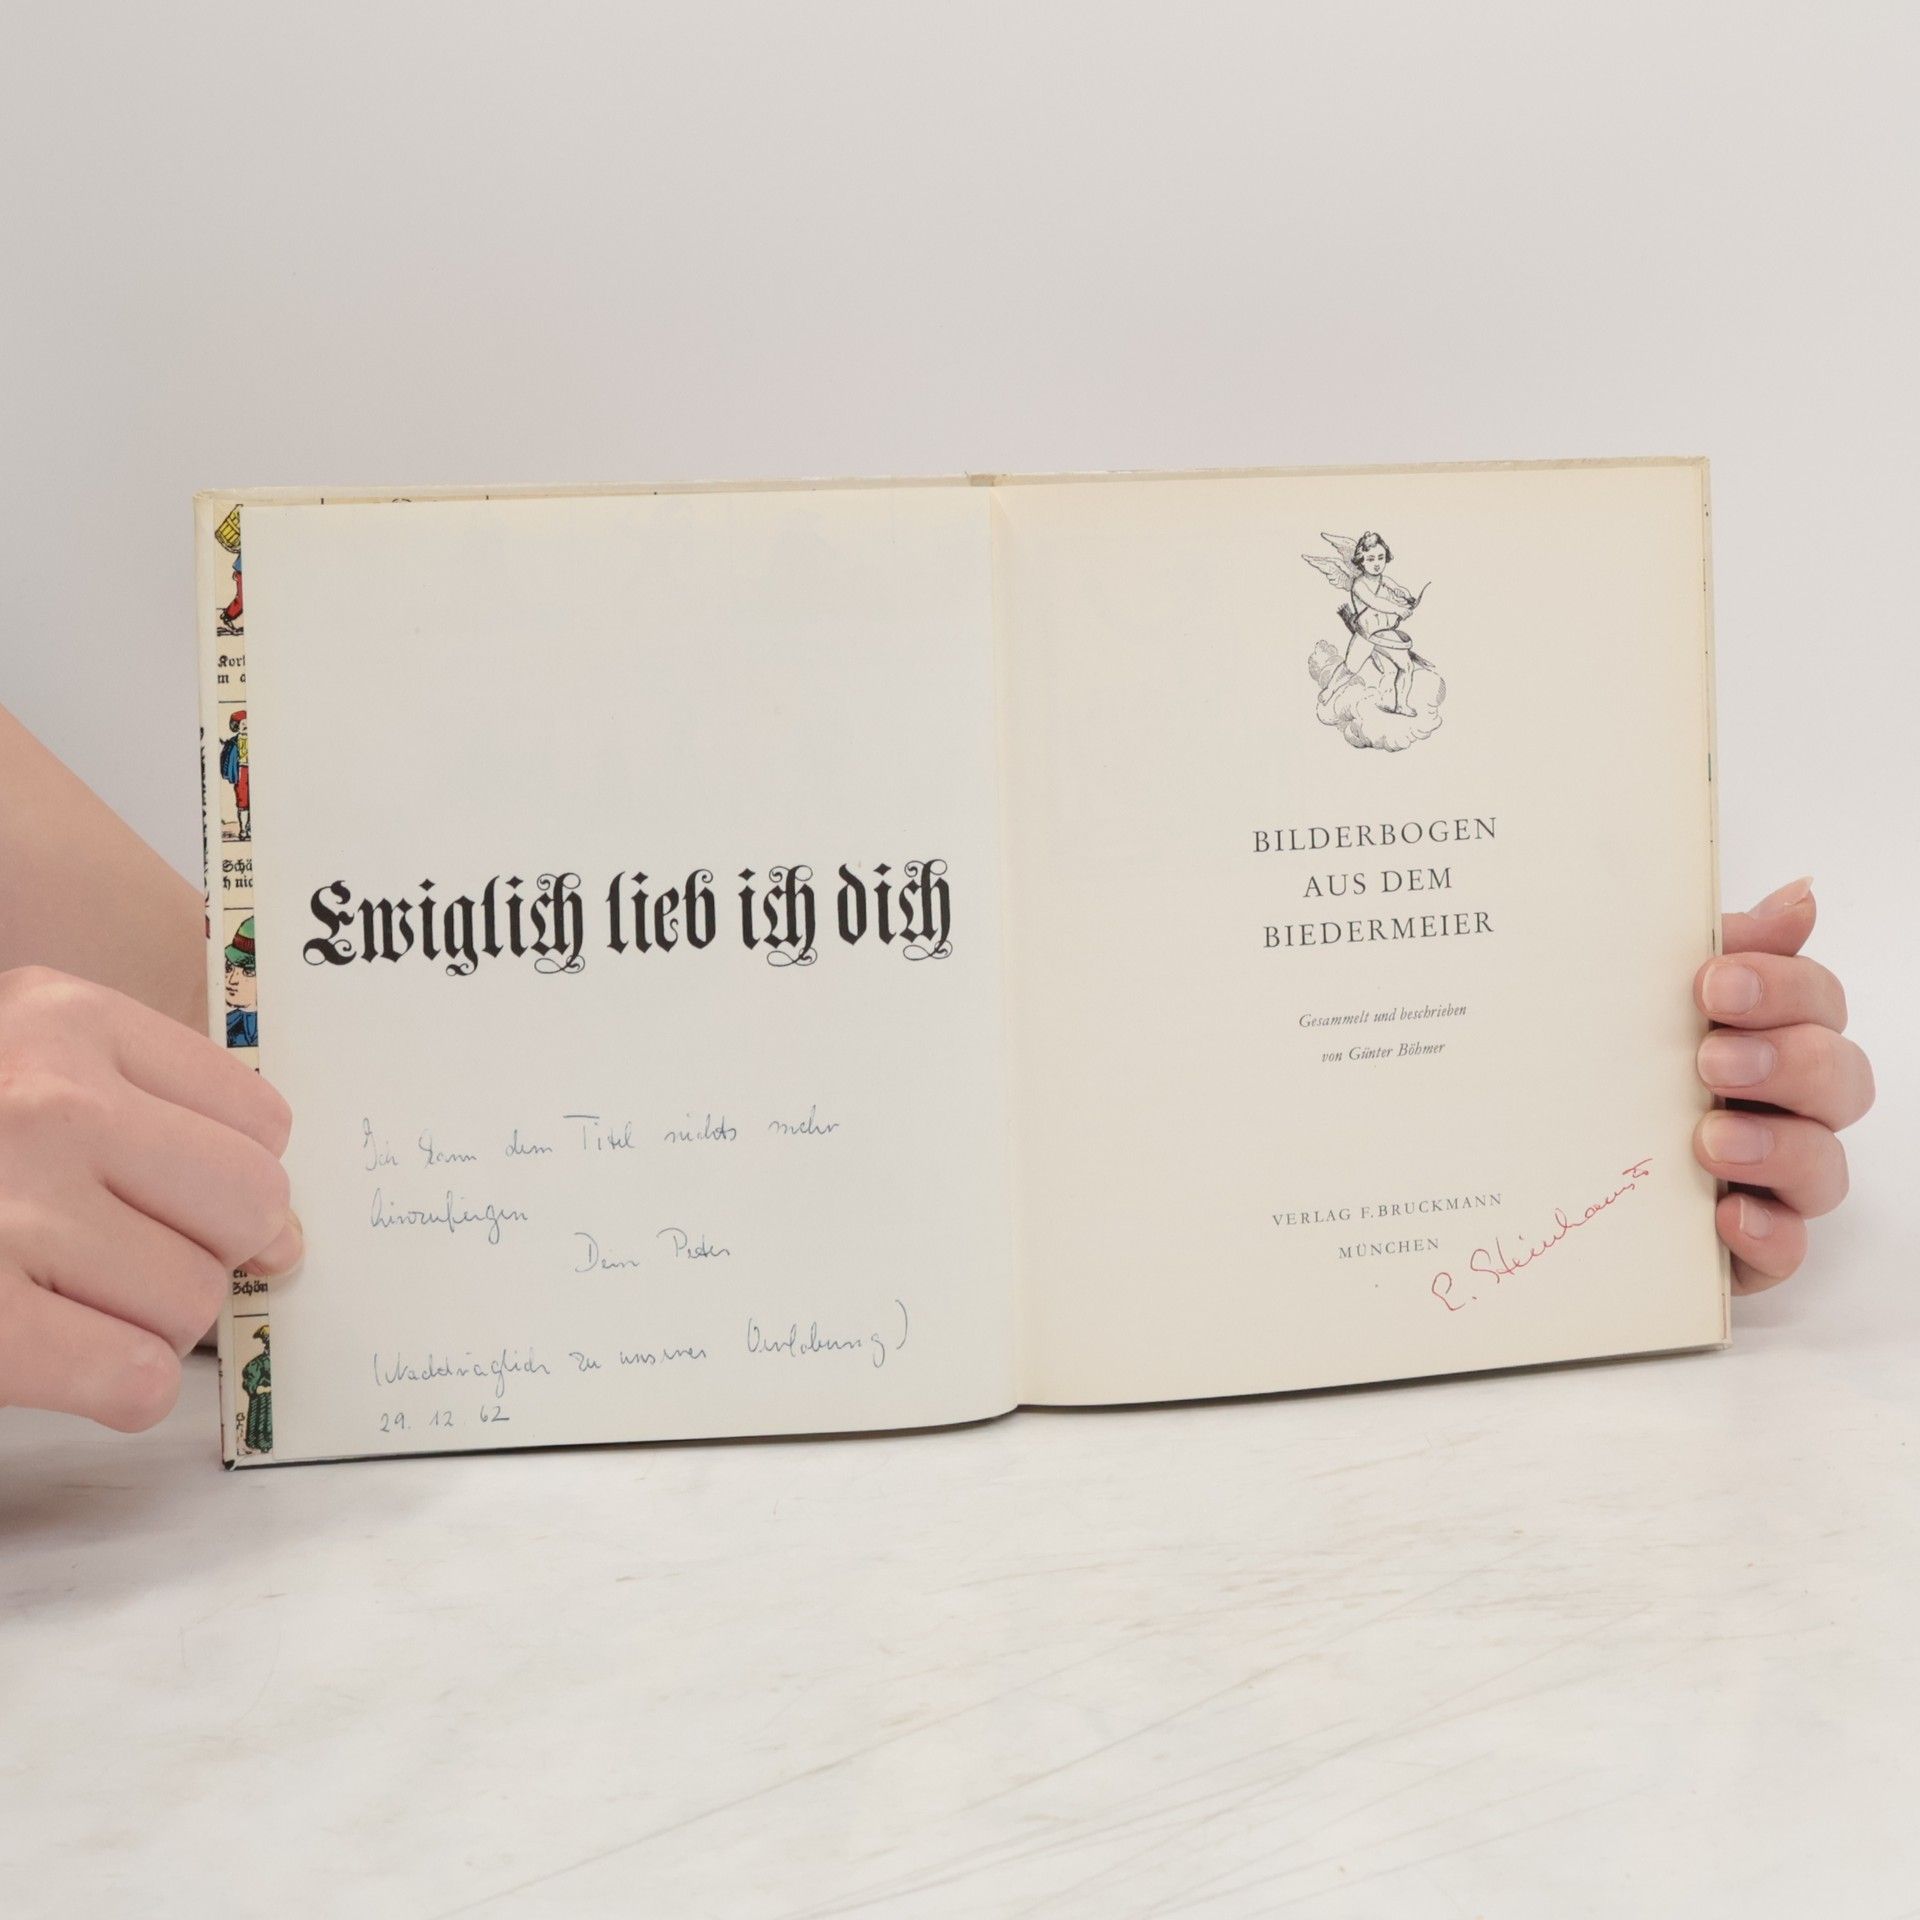 Ewiglich lieb ich dich
Ich kann dem Titel nichts mehr
hinzufügen
Dein Peter
(Nachträglich zu unserer Verlobung)
29. 12. 62
BILDERBOGEN
AUS DEM
BIEDERMEIER
Gesammelt und beschrieben
von Günter Böhmer
VERLAG F. BRUCKMANN
MÜNCHEN